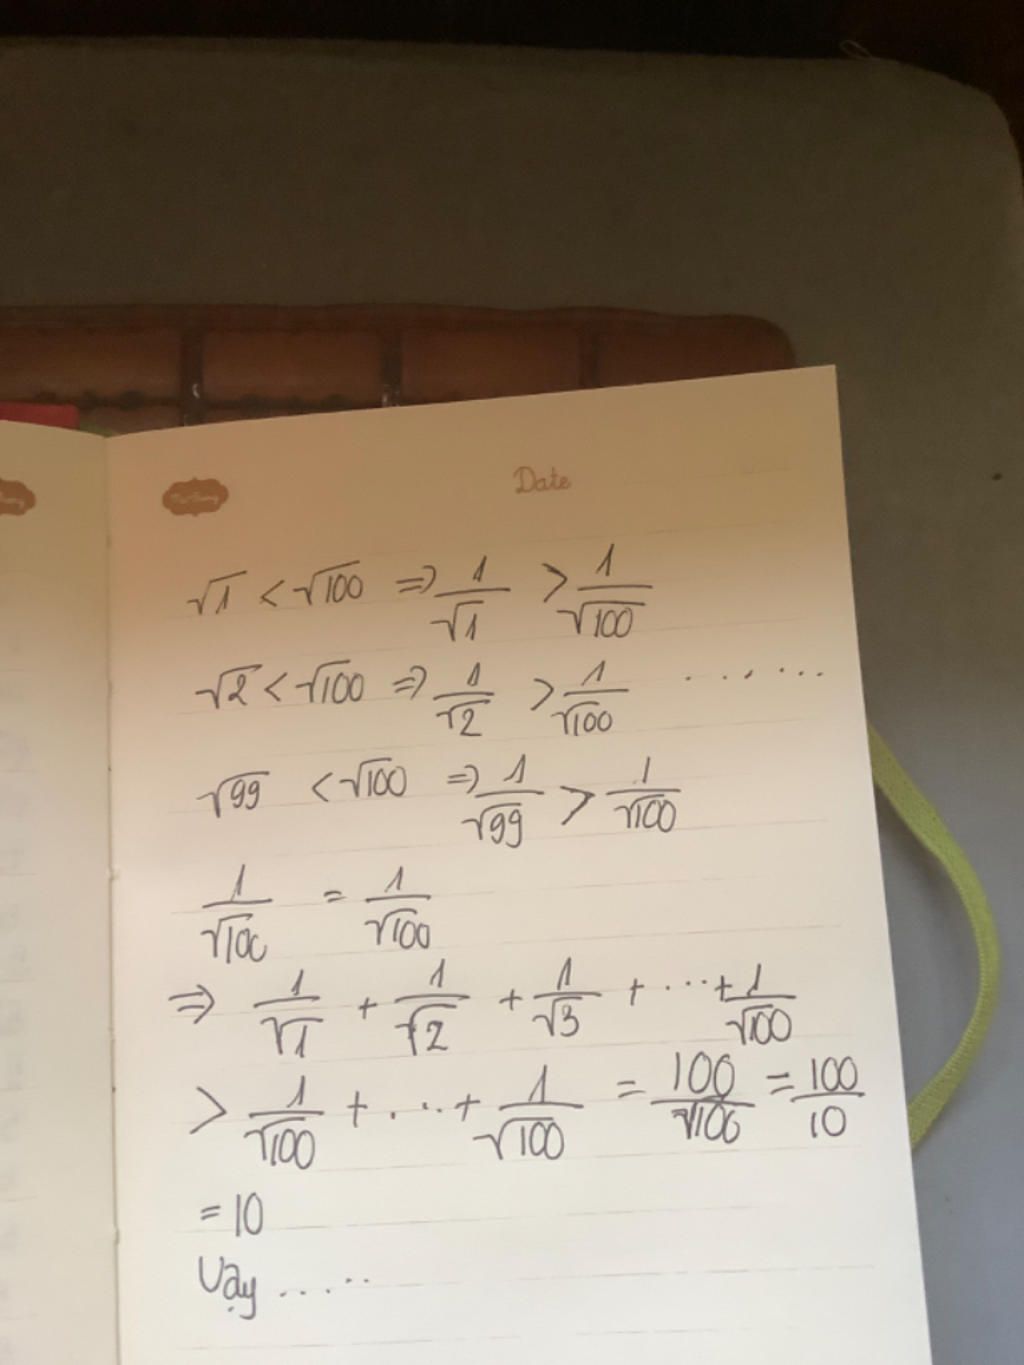 Date
√1 < √100 ⇒ 1/√1 > 1/√100
√2 < √100 ⇒ 1/√2 > 1/√100 .......
√99 < √100 ⇒ 1/√99 > 1/√100
1/√100 = 1/√100
⇒ 1/√1 + 1/√2 + 1/√3 + ... + 1/√100
> 1/√100 + ... + 1/√100 = 100/√100 = 100/10
= 10
Vậy ......